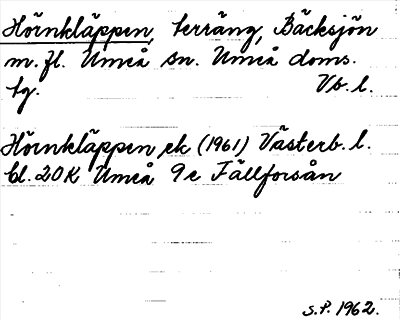 Hörnkläppen, terräng, Bäcksjön
m. fl. Umeå sn. Umeå doms.
tg. Vb. l.
Hörnkläppen, ek (1961) Västerb. l.
bl. 20K Umeå 9e Fällforsån
S.P. 1962.